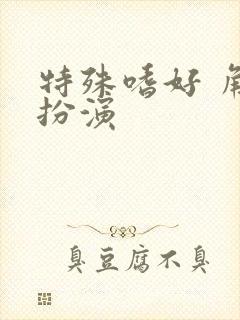 特殊嗜好 角
扮演
臭豆腐不臭